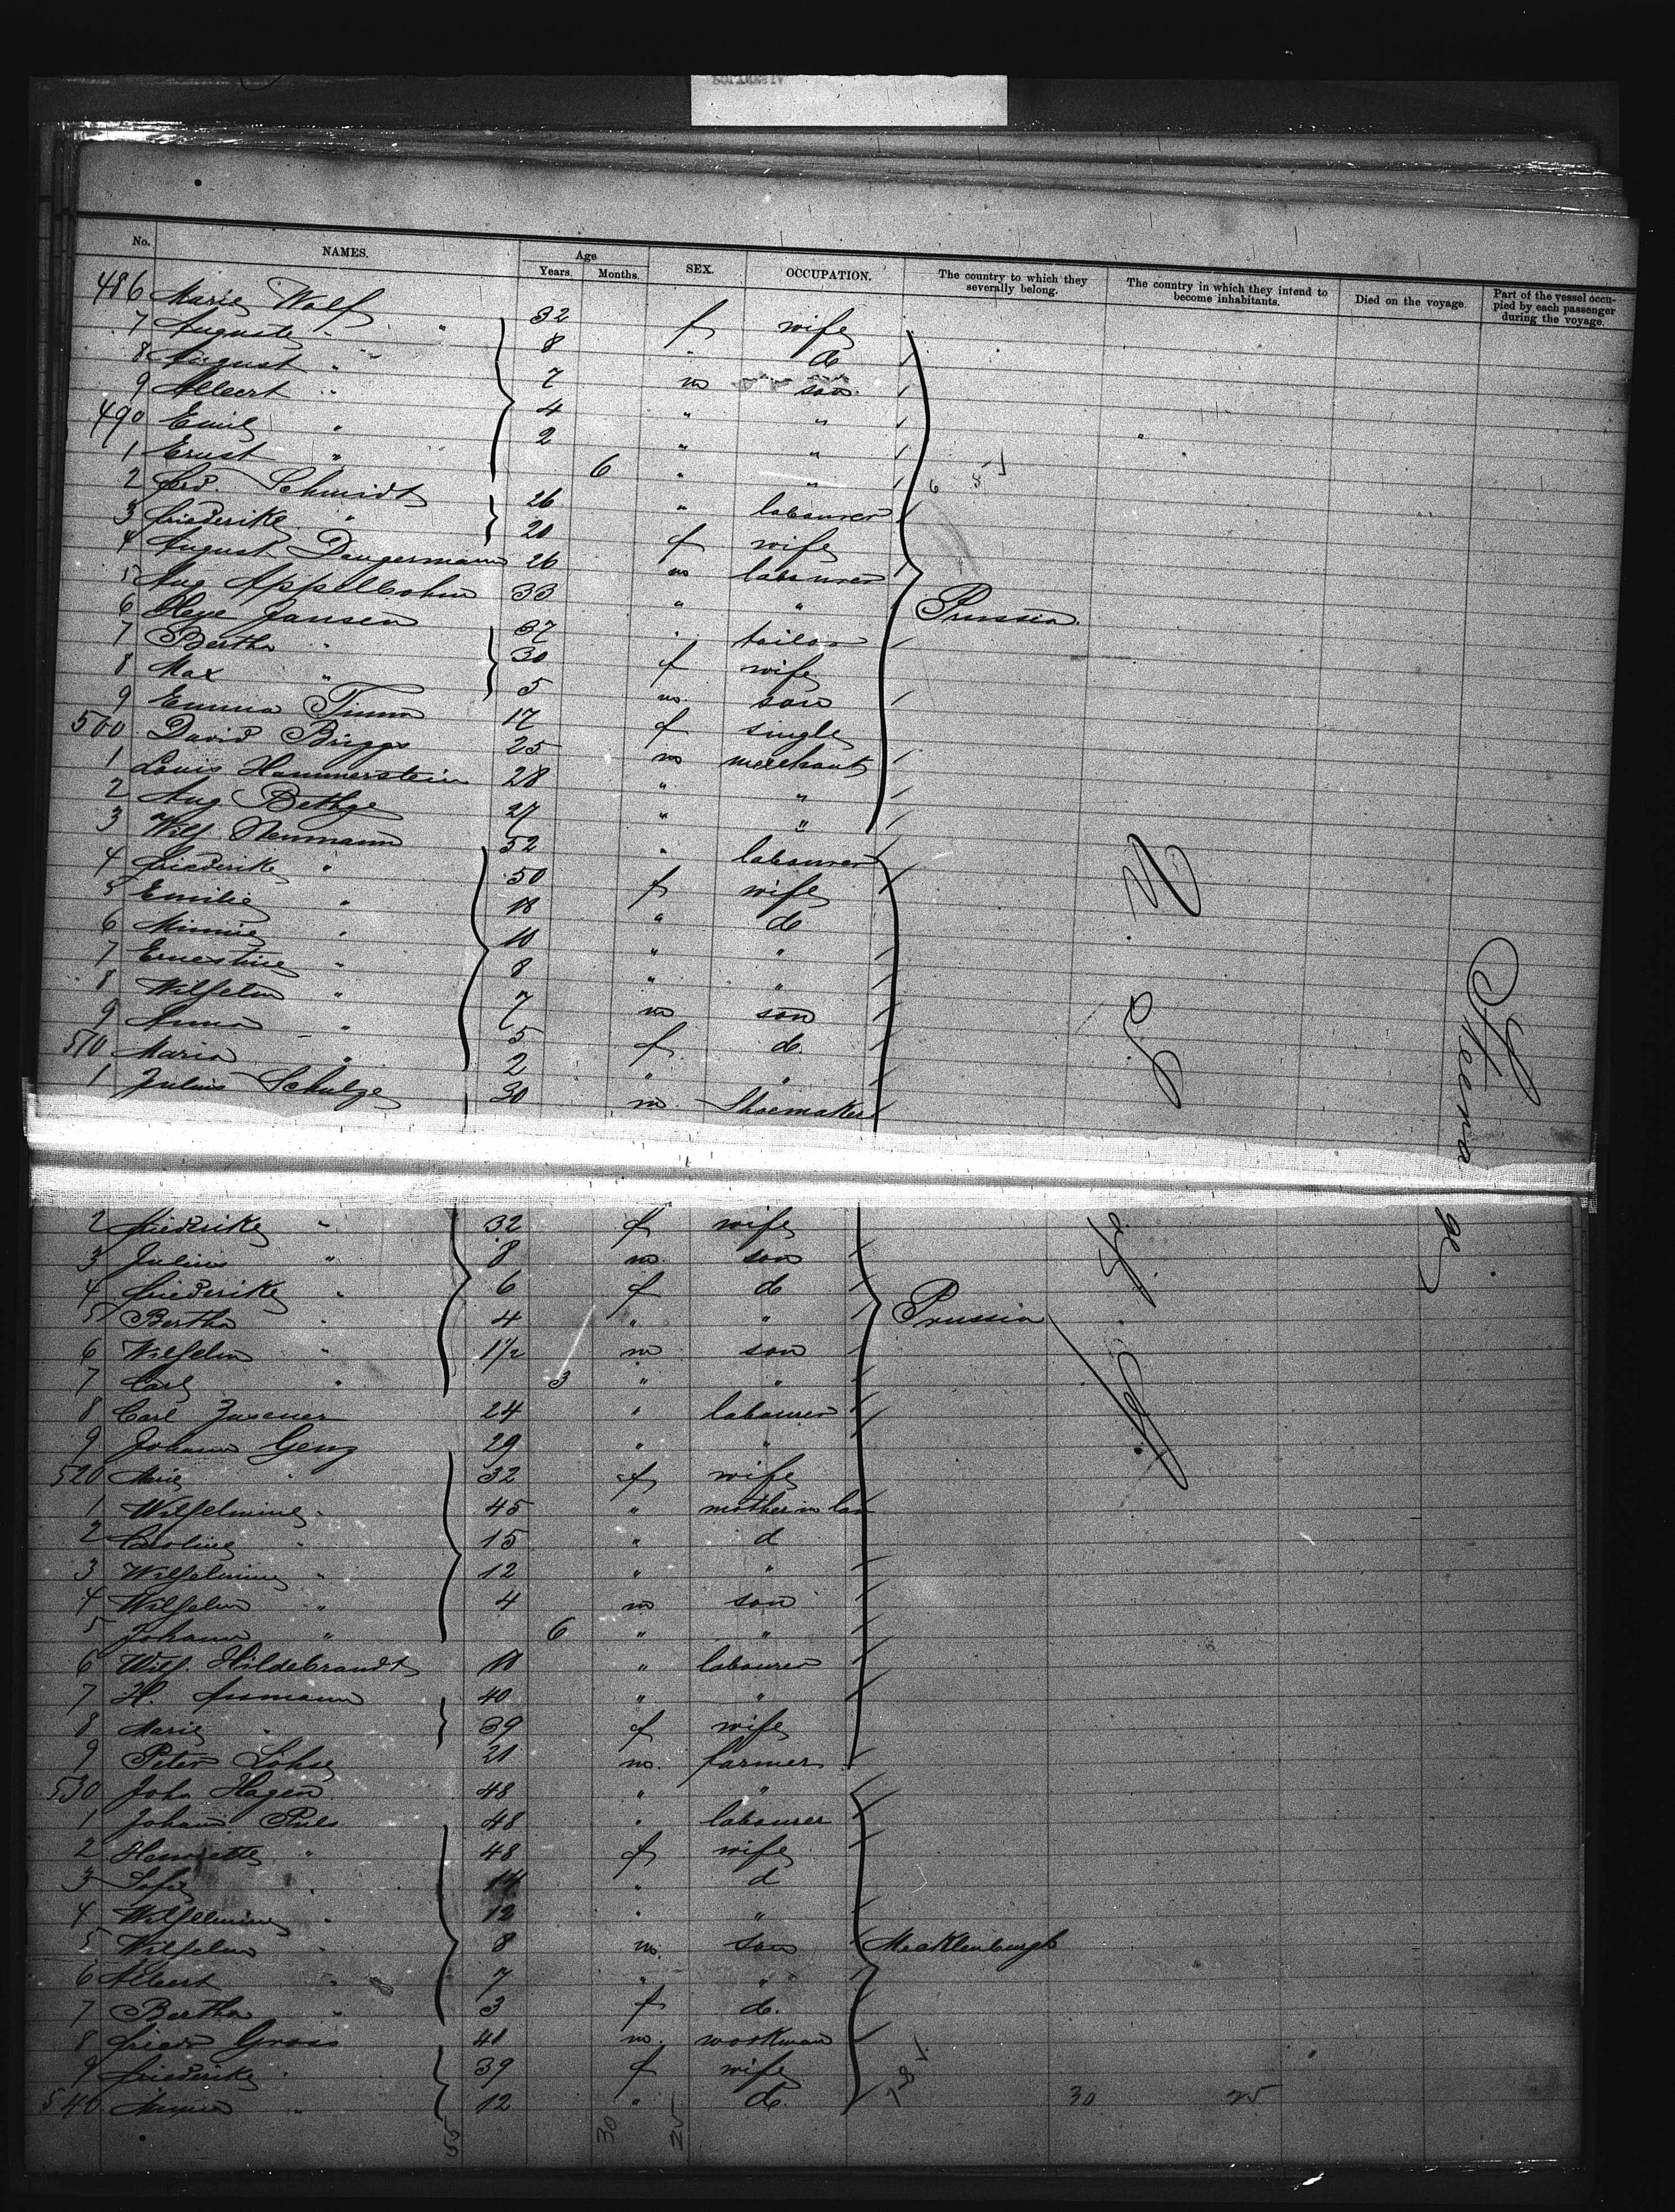 No. NAMES. Age Years. Months. SEX. OCCUPATION. The country to which they severally belong. The country in which they intend to become inhabitants. Died on the voyage. Part of the vessel occupied by each passenger during the voyage.
486 Marie Wolf 32 f wife
7 Auguste " 8 " d
8 August " 7 m son
9 Albert " 4 " "
490 Emil " 2 " "
1 Ernst " 6 " "
2 Ferd. Schmidt 26 " labourer
3 Friederike " 20 f wife
4 August Dangermann 26 m labourer
5 Aug Appelbohm 33 " "
6 Heye Jansen 37 " tailor Prussia
7 Bertha " 30 f wife
8 Max " 5 m son
9 Emma Timm 17 f single
500 David Briggs 25 m merchant
1 Louis Hammerstein 28 " "
2 Aug Bethge 27 " "
3 Wilh Neumann 52 " labourer
4 Friederike " 50 f wife
5 Emilie " 18 " d
6 Minnie " 10 " "
7 Ernestine " 8 " "
8 Wilhelm " 7 m son
9 Anna " 5 f d.
510 Maria " 2 " "
1 Julius Schulze 30 m Shoemaker
2 Friederike " 32 f wife
3 Julius " 8 m son
4 Friederike " 6 f d
5 Bertha " 4 " " Prussia
6 Wilhelm " 1½ m son
7 Carl " 3 " "
8 Carl 24 " labourer
9 Johann Genz 29 " "
520 Marie " 32 f wife
1 Wilhelmine " 45 " mother in law
2 Caroline " 15 " d
3 Wilhelmine " 12 " "
4 Wilhelm " 4 m son
5 Johann " 6 " "
6 Wilh. Hildebrandt 18 " labourer
7 H. Assmann 40 " "
8 Marie " 39 f wife
9 Peter Lohse 21 m. farmer
530 Joh. Hagen 48 " "
1 Johann Puls 48 " labourer
2 Henriette " 48 f wife
3 Sofie " 14 " d
4 Wilhelmine " 12 " "
5 Wilhelm " 8 m. son Mecklenburgh
6 Albert " 7 " "
7 Bertha " 3 f d.
8 Friedr Gross 41 m. workman
9 Friederike " 39 f wife
540 Minna " 12 " d.
30 25
55 30 25
U. S. of
Steerage